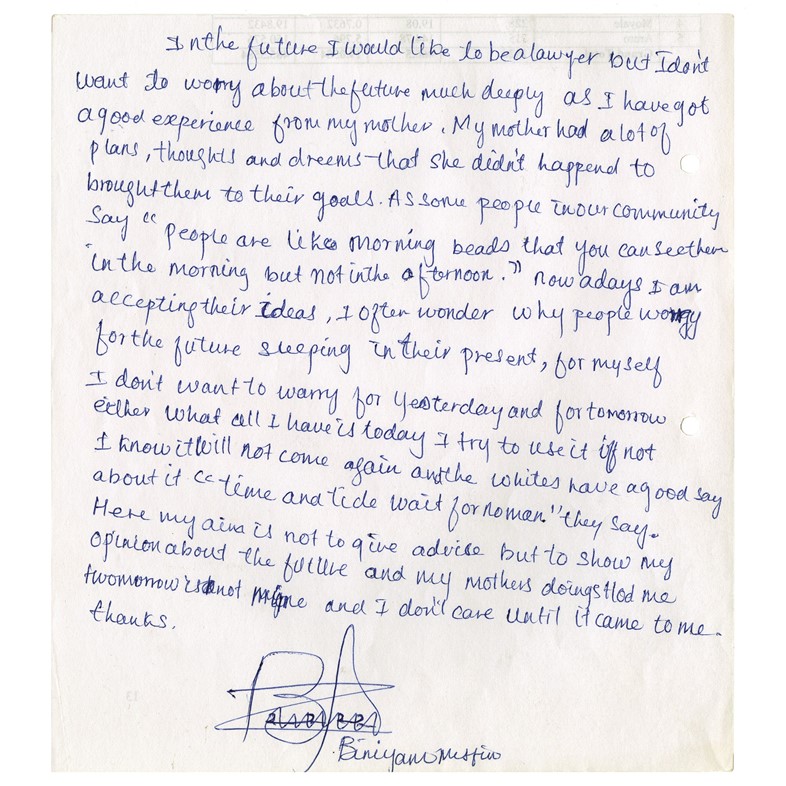 In the future I would like to be a lawyer but I don't
want to worry about the future much deeply as I have got
a good experience from my mother. My mother had a lot of
plans, thoughts and dreems that she didn't happend to
brought them to their goals. As some people in our community
say " people are like morning beads that you can see them
in the morning but not in the afternoon." now adays I am
accepting their ideas, I often wonder why people worry
for the future sleeping in their present, for myself
I don't want to warry for yesterday and for tomorrow
either what all I have is today I try to use it if not
I know it will not come again and the whites have a good say
about it "time and tide wait for no man." they say.
Here my aim is not to give advise but to show my
opinion about the future and my mothers doings tlod me
twomorrow is not mine and I don't care until it came to me.
thanks.
Biniyam Mesfin